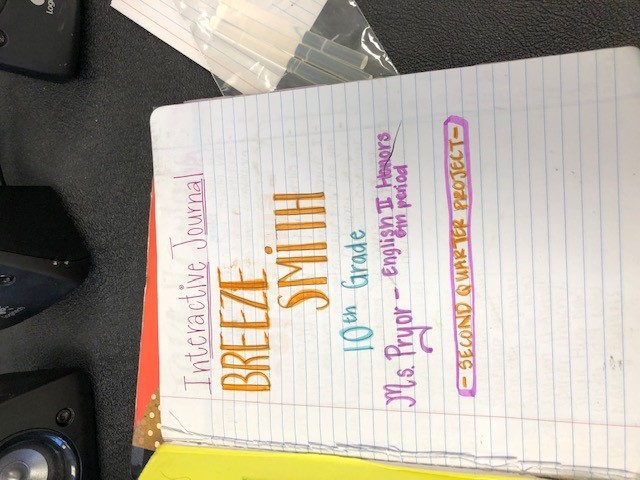 Interactive Journal
BREEZE
SMITH
10th Grade
Ms. Pryor - English II Honors
6th period
- SECOND QUARTER PROJECT -